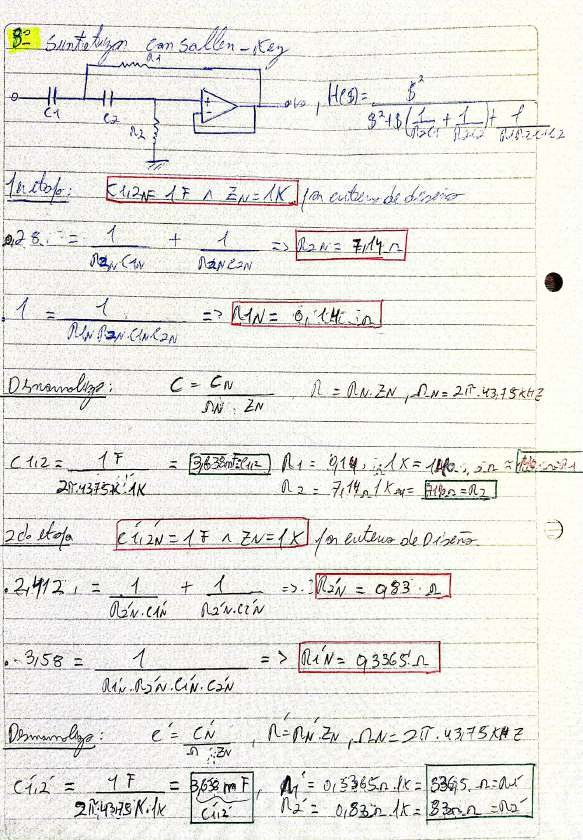 8º Sintetizo con Sallen-Key
R1
C1 C2 R2 + -
, H(s) = s² / s² + s(1/R2C1 + 1/R2C2) + 1/R1R2C1C2
1er etapa: C1,2N = 1F ∧ ZN = 1K por criterio de diseño
0,28 = 1/R2N C1N + 1/R2N C2N => R2N = 7,14Ω
1 = 1/R1N.R2N.C1N.C2N => R1N = 0,14 Ω
Desnormalizo: C = CN/ΩN.ZN R = RN.ZN, ΩN = 2π.43,75KHZ
C1,2 = 1F/2π.4375K.1K = R1 = 0,14 Ω.1K = 140 Ω
R2 = 7,14Ω.1K =
2do etapa C'1,2N = 1F ∧ ZN = 1K por criterio de Diseño
2,412 = 1/R'2N.C'1N + 1/R'2N.C'2N => R'2N = 0,83 Ω
3,58 = 1/R'1N.R'2N.C'1N.C'2N => R'1N = 0,3365 Ω
Desnormalizo: C' = C'N/Ω.ZN, R' = R'N.ZN, ΩN = 2π.43,75KHZ
C'1,2 = 1F/2π.43,75K.1K = , R'1 = 0,3365Ω.1K = 336,5 Ω = R'1
C'1,2 R'2 = 0,83Ω.1K = 830 Ω = R'2